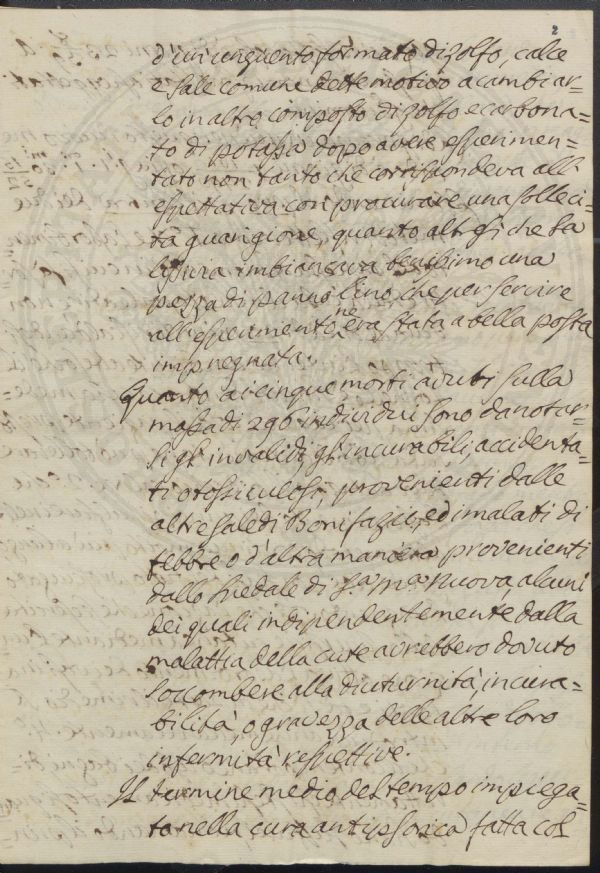 2
d'un unguento formato di zolfo, calce
e sale comune dette motivo a cambiar=
lo in altro composto di zolfo e carbona=
to di potassa dopo avere esperimen=
tato non tanto che corrispondeva all'
espettativa con procurare una solleci=
tà guarigione, quanto altresì che la
lissiva imbiancava benissimo una
pezza di panno lino che per servire
all'esperimento ne era stata a bella posta
impregnata.
Quanto ai cinque morti avuti sulla
massa di 296 individui sono da notar=
si gl' invalidi, gl' incurabili, accidenta=
ti o tossiculosi, provenienti dalle
altre sale di Bonifazio, ed i malati di
febbre o d'altra maniera provenienti
dallo Spedale di S.a M.a Nuova, alcuni
dei quali indipendentemente dalla
malattia della cute avrebbero dovuto
soccombere alla diuturnità, incura=
bilità, o gravezza delle altre loro
infermità respettive.
Il termine medio del tempo impiega=
to nella cura antipsorica fatta col